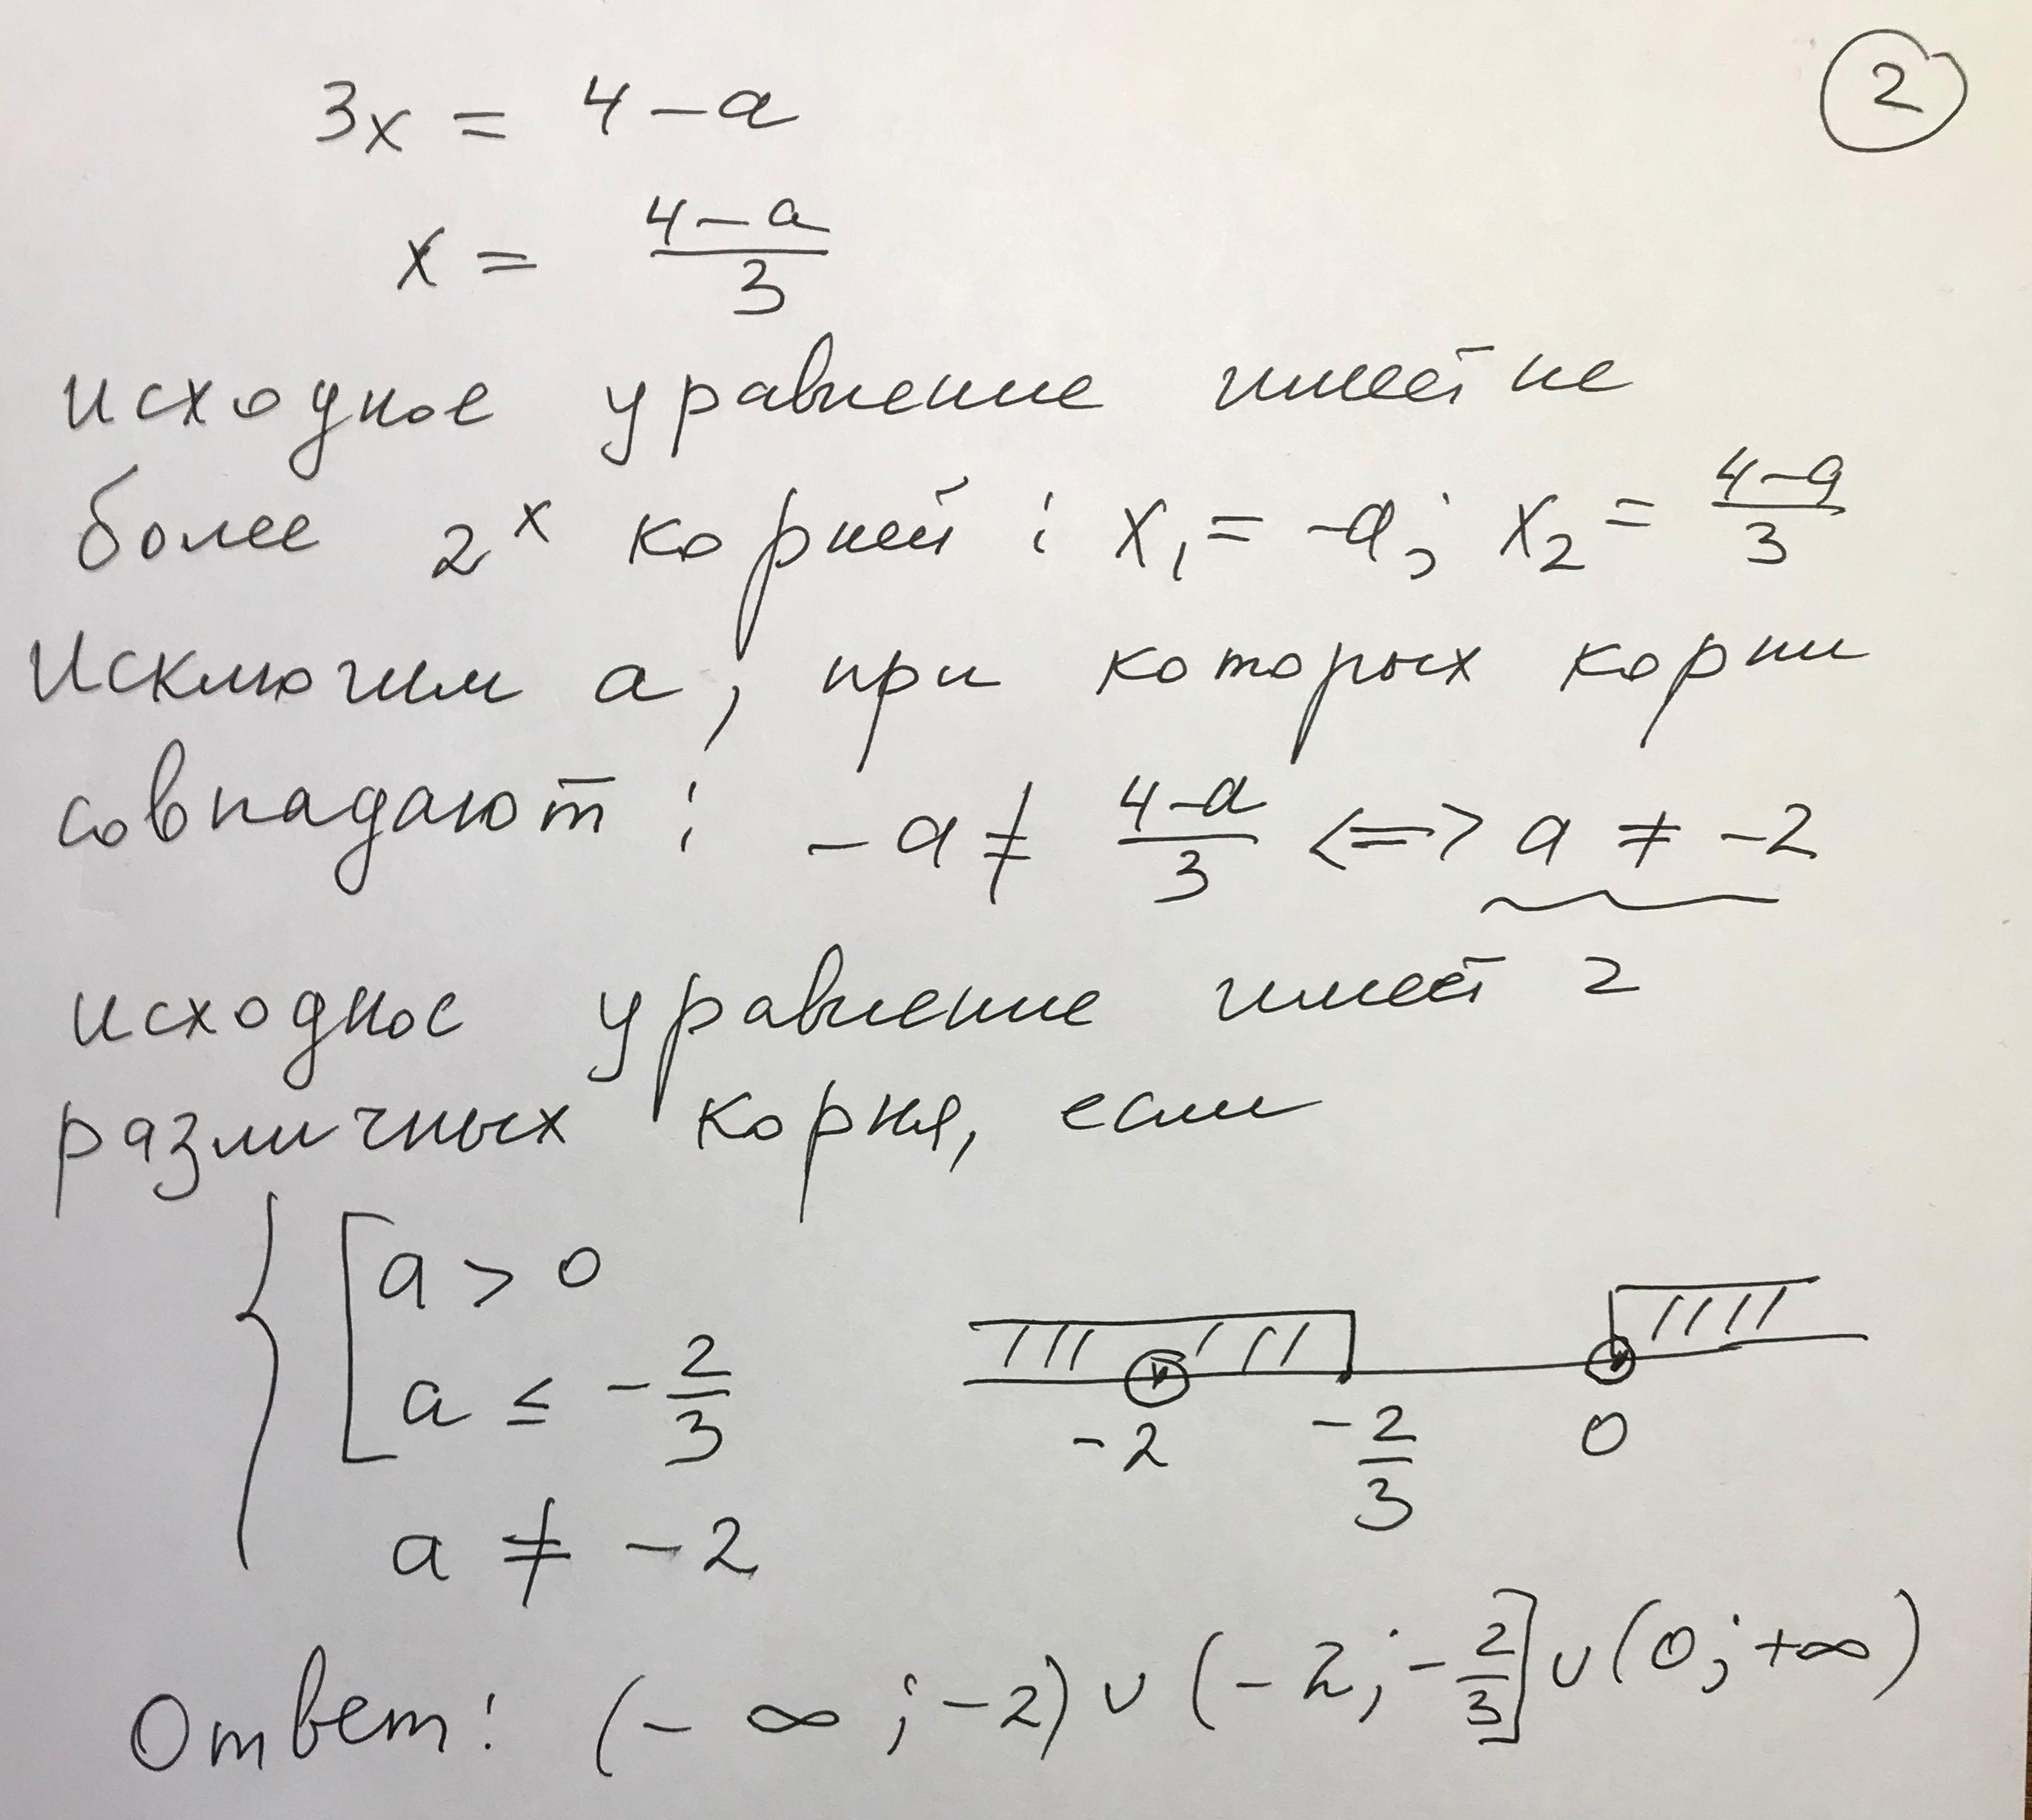 2
3x = 4 - a
x = \frac{4-a}{3}
исходное уравнение имеет не
более 2^х корней : x_1 = -a; x_2 = \frac{4-a}{3}
Исключим a, при которых корни
совпадают : -a ≠ \frac{4-a}{3} <=> a ≠ -2
исходное уравнение имеет 2
различных корня, если
{ [ a > 0
a ≤ -\frac{2}{3}
a ≠ -2
-2 -\frac{2}{3} 0
Ответ: (-∞; -2) ∪ (-2; -\frac{2}{3}] ∪ (0; +∞)